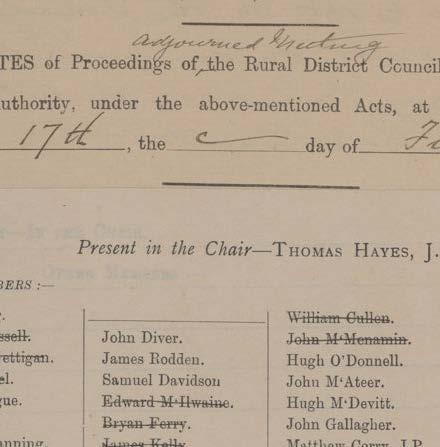 adjourned Meeting
TES of Proceedings of the Rural District Council
uthority, under the above-mentioned Acts, at
17th, the day of
Present in the Chair—THOMAS HAYES, J.
BERS :—
William Cullen.
ssell.
John Diver.
John M'Menamin.
ettigan.
James Rodden.
Hugh O'Donnell.
el.
Samuel Davidson
John M'Ateer.
gue.
Edward M'Ilwaine.
Hugh M'Devitt.
Bryan Ferry.
John Gallagher.
anning.
James Kelly.
Matthew Corry, J.P.